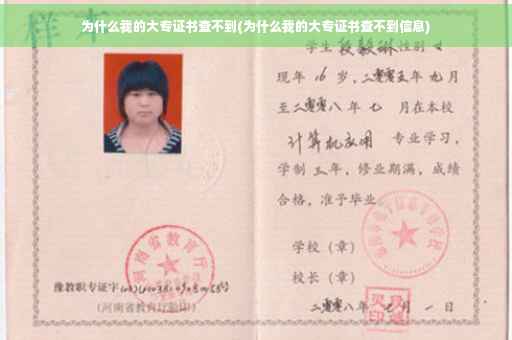 为什么我的大专证书查不到(为什么我的大专证书查不到信息)
样本
学生 性别 女
现年 16 岁，二零零五年 九月
至二零零八年 七 月在本校
计算机应用 专业学习，
学制 三年，修业期满，成绩
合格，准予毕业
学校（章）
校长（章）
二零零八年 七 月 一 日
河南省教育厅
豫教职专证字
(河南省教育厅验印)